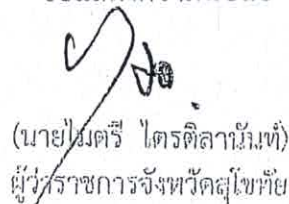 (นายไมตรี ไตรติลานันท์)
ผู้ว่าราชการจังหวัดสุโขทัย